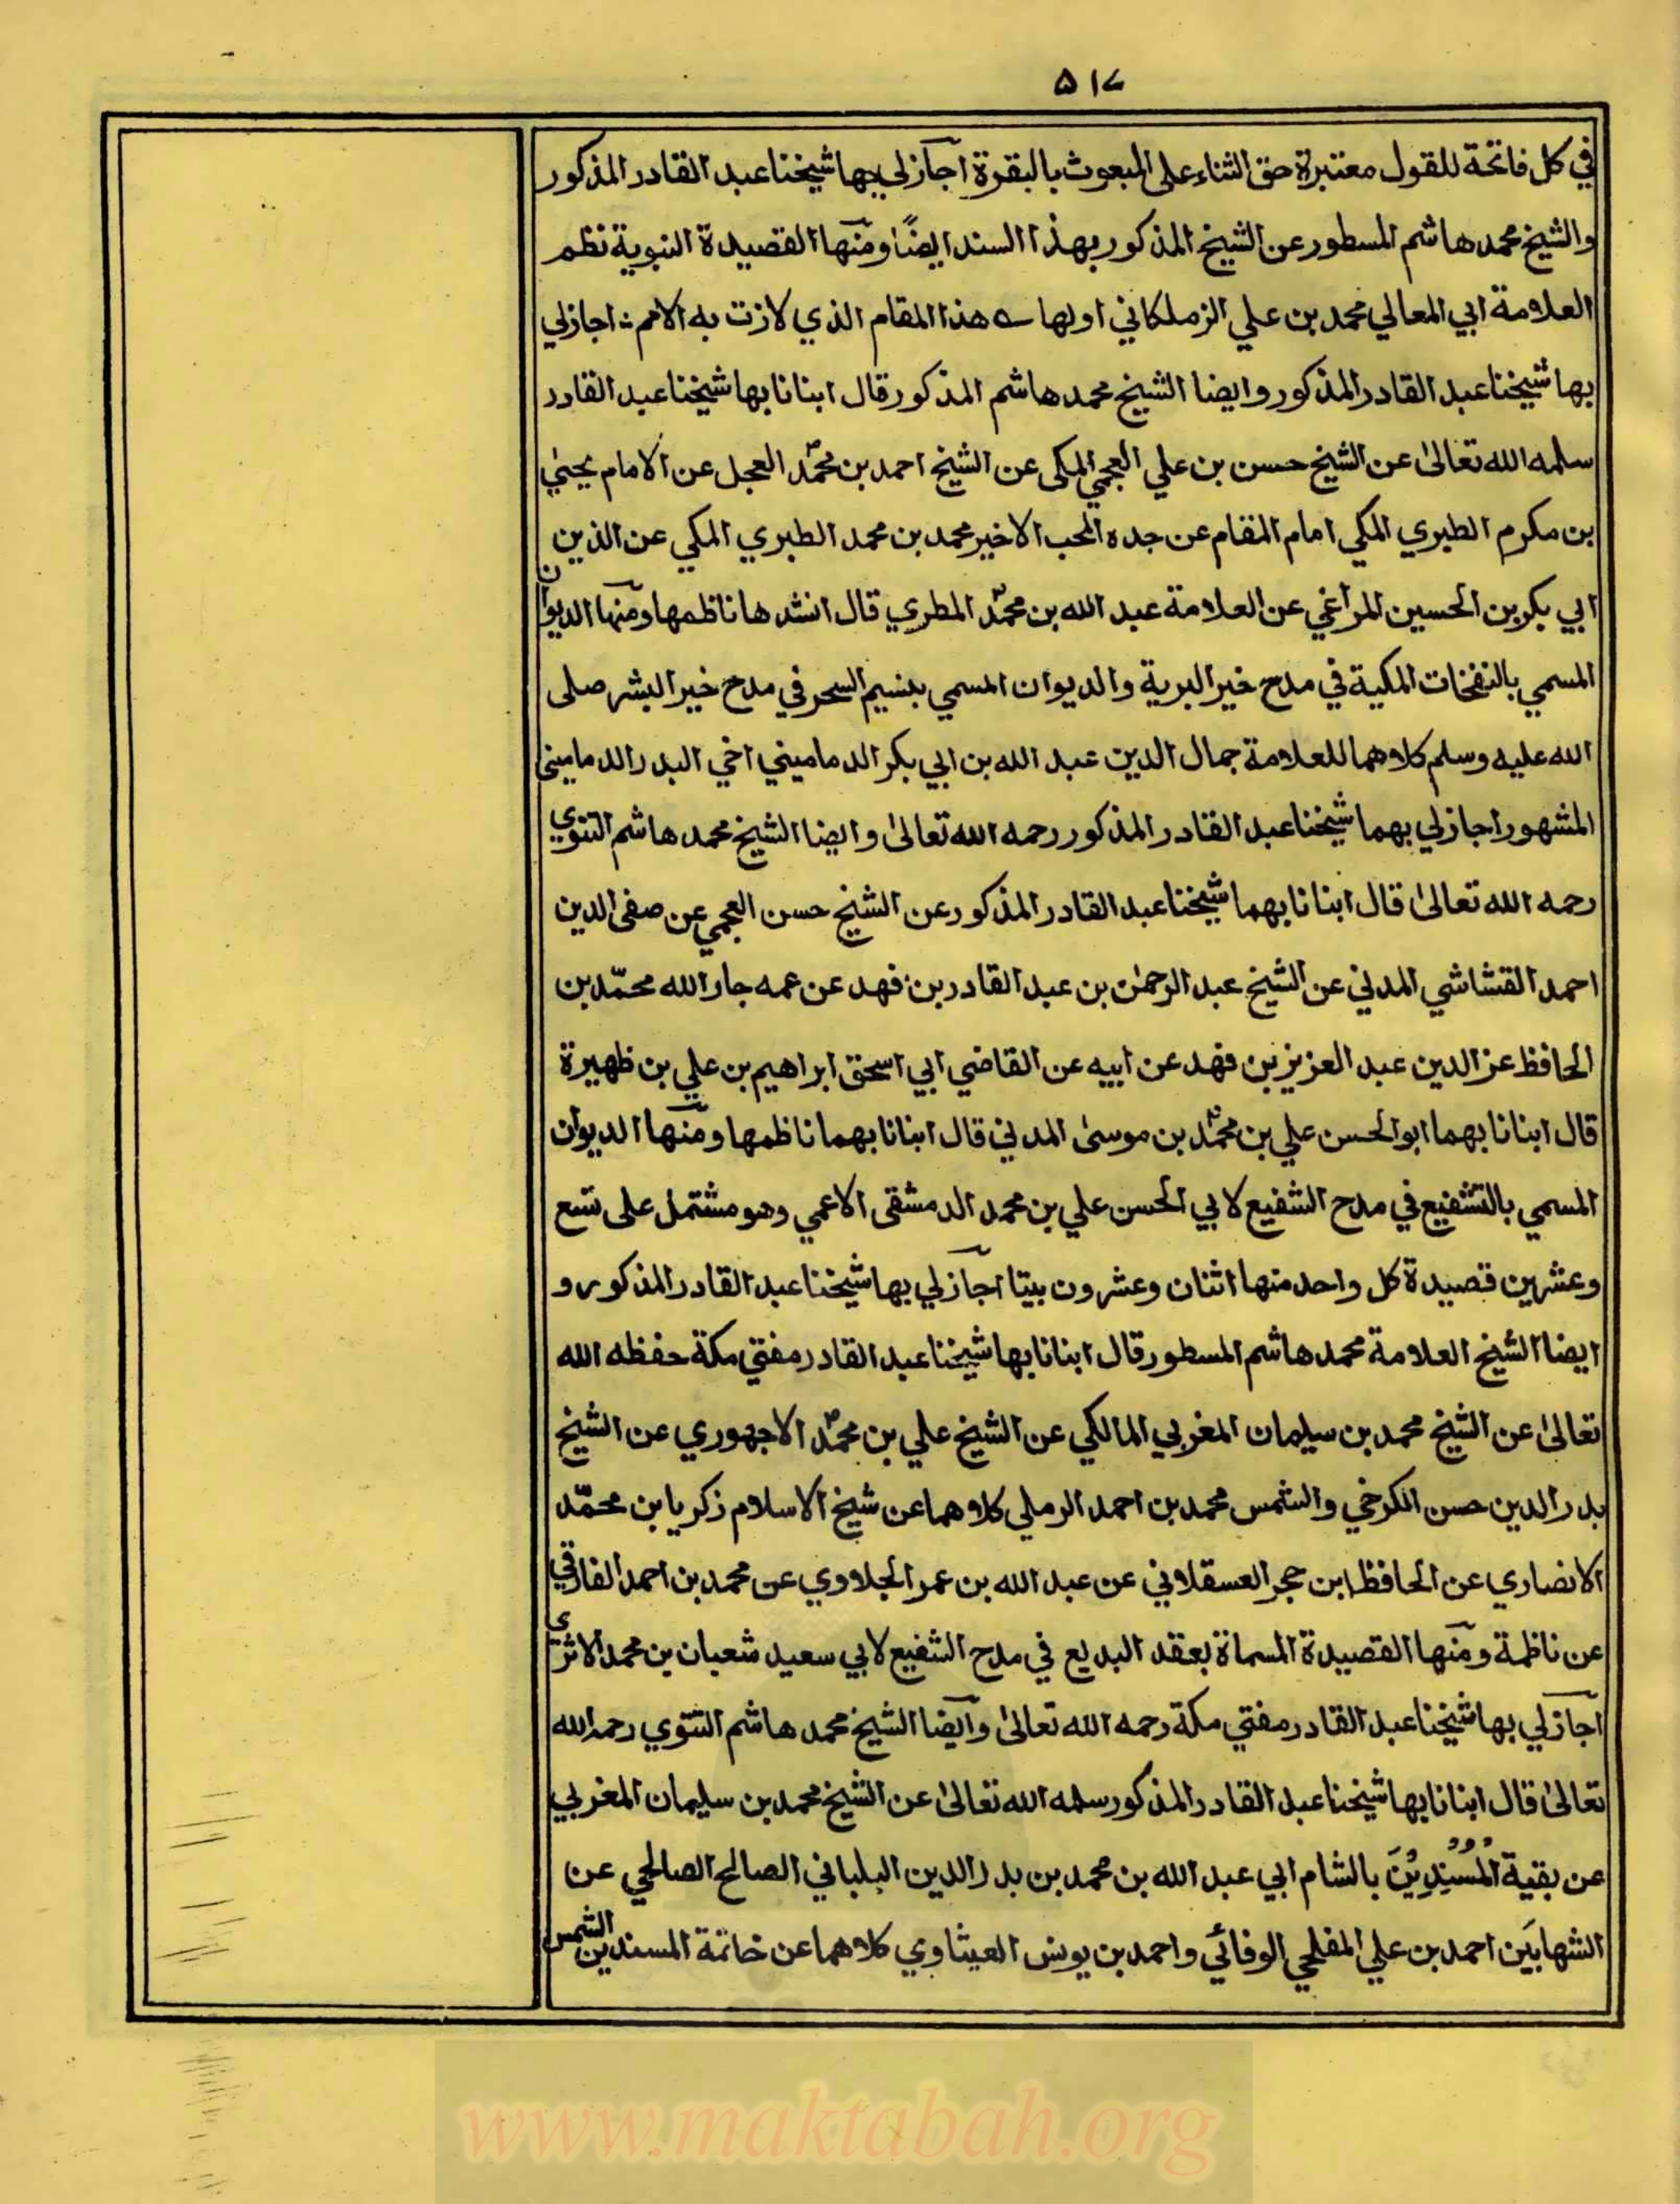 ۵۱۷
في كل فاتحة للقول معتبرة حق الثناء على المبعوث بالبقرة اجازلي بها شيخنا عبد القادر المذكور
والشيخ محمد هاشم المسطور عن الشيخ المذكور بهذا السند ايضًا ومنها القصيدة النبوية نظم
العلامة ابي المعالي محمد بن علي الزملكاني اولها ؎ هذا المقام الذي لازت به الامم ؛ اجازلي
بها شيخنا عبد القادر المذكور وايضا الشيخ محمد هاشم المذكور قال انبانا بها شيخنا عبد القادر
سلمه الله تعالىٰ عن الشيخ حسن بن علي العجمي المكى عن الشيخ احمد بن محمّد العجل عن الامام يحيىٰ
بن مكرم الطبري المكي امام المقام عن جده المحب الاخير محمد بن محمد الطبري المكي عن الذين
ابي بكر بن الحسين المراغي عن العلامة عبد الله بن محمّد المطري قال انشدها ناظمها ومنها الديوان
المسمي بالنفخات المكية في مدح خير البرية والديوان المسمي بنسيم السحر في مدح خير البشر صلى
الله عليه وسلم كلاهما للعلامة جمال الدين عبد الله بن ابي بكر الدماميني اخي البدر الدماميني
المشهور اجازلي بهما شيخنا عبد القادر المذكور رحمه الله تعالىٰ وايضا الشيخ محمد هاشم التتوي
رحمه الله تعالىٰ قال انبانا بهما شيخنا عبد القادر المذكور عن الشيخ حسن العجمي عن صفى الدين
احمد القشاشي المدني عن الشيخ عبد الرحمٰن بن عبد القادر بن فهد عن عمه جار الله محمّد بن
الحافظ عز الدين عبد العزيز بن فهد عن ابيه عن القاضي ابي اسحٰق ابراهيم بن علي بن ظهيرة
قال انبانا بهما ابو الحسن علي بن محمّد بن موسىٰ المدني قال انبانا بهما ناظمها ومنها الديوان
المسمي بالتشفيع في مدح الشفيع لابي الحسن علي بن محمد الدمشقى الاعمي وهو مشتمل على تسع
وعشرين قصيدة كل واحد منها اثنان وعشرون بيتا اجازلي بها شيخنا عبد القادر المذكور و
ايضا الشيخ العلامة محمد هاشم المسطور قال انبانا بها شيخنا عبد القادر مفتي مكة حفظه الله
تعالىٰ عن الشيخ محمد بن سليمان المغربي المالكي عن الشيخ علي بن محمّد الاجهوري عن الشيخ
بدر الدين حسن الكرخي والشمس محمد بن احمد الرملي كلاهما عن شيخ الاسلام زكريا بن محمّد
الانصاري عن الحافظ ابن حجر العسقلاني عن عبد الله بن عمر الحلاوي عن محمد بن احمد الفارقي
عن ناظمة ومنها القصيدة المسماة بعقد البديع في مدح الشفيع لابي سعيد شعبان بن محمد الاثري
اجازلي بها شيخنا عبد القادر مفتي مكة رحمه الله تعالىٰ وايضا الشيخ محمد هاشم التتوي رحمه الله
تعالىٰ قال انبانا بها شيخنا عبد القادر المذكور سلمه الله تعالىٰ عن الشيخ محمد بن سليمان المغربي
عن بقية المُسْنِدِيْنَ بالشام ابي عبد الله بن محمد بن بدر الدين البلباني الصالح الصالحي عن
الشهابَين احمد بن علي المفلحي الوفائي واحمد بن يونس العيثاوي كلاهما عن خاتمة المسندين الشمس
www.maktabah.org